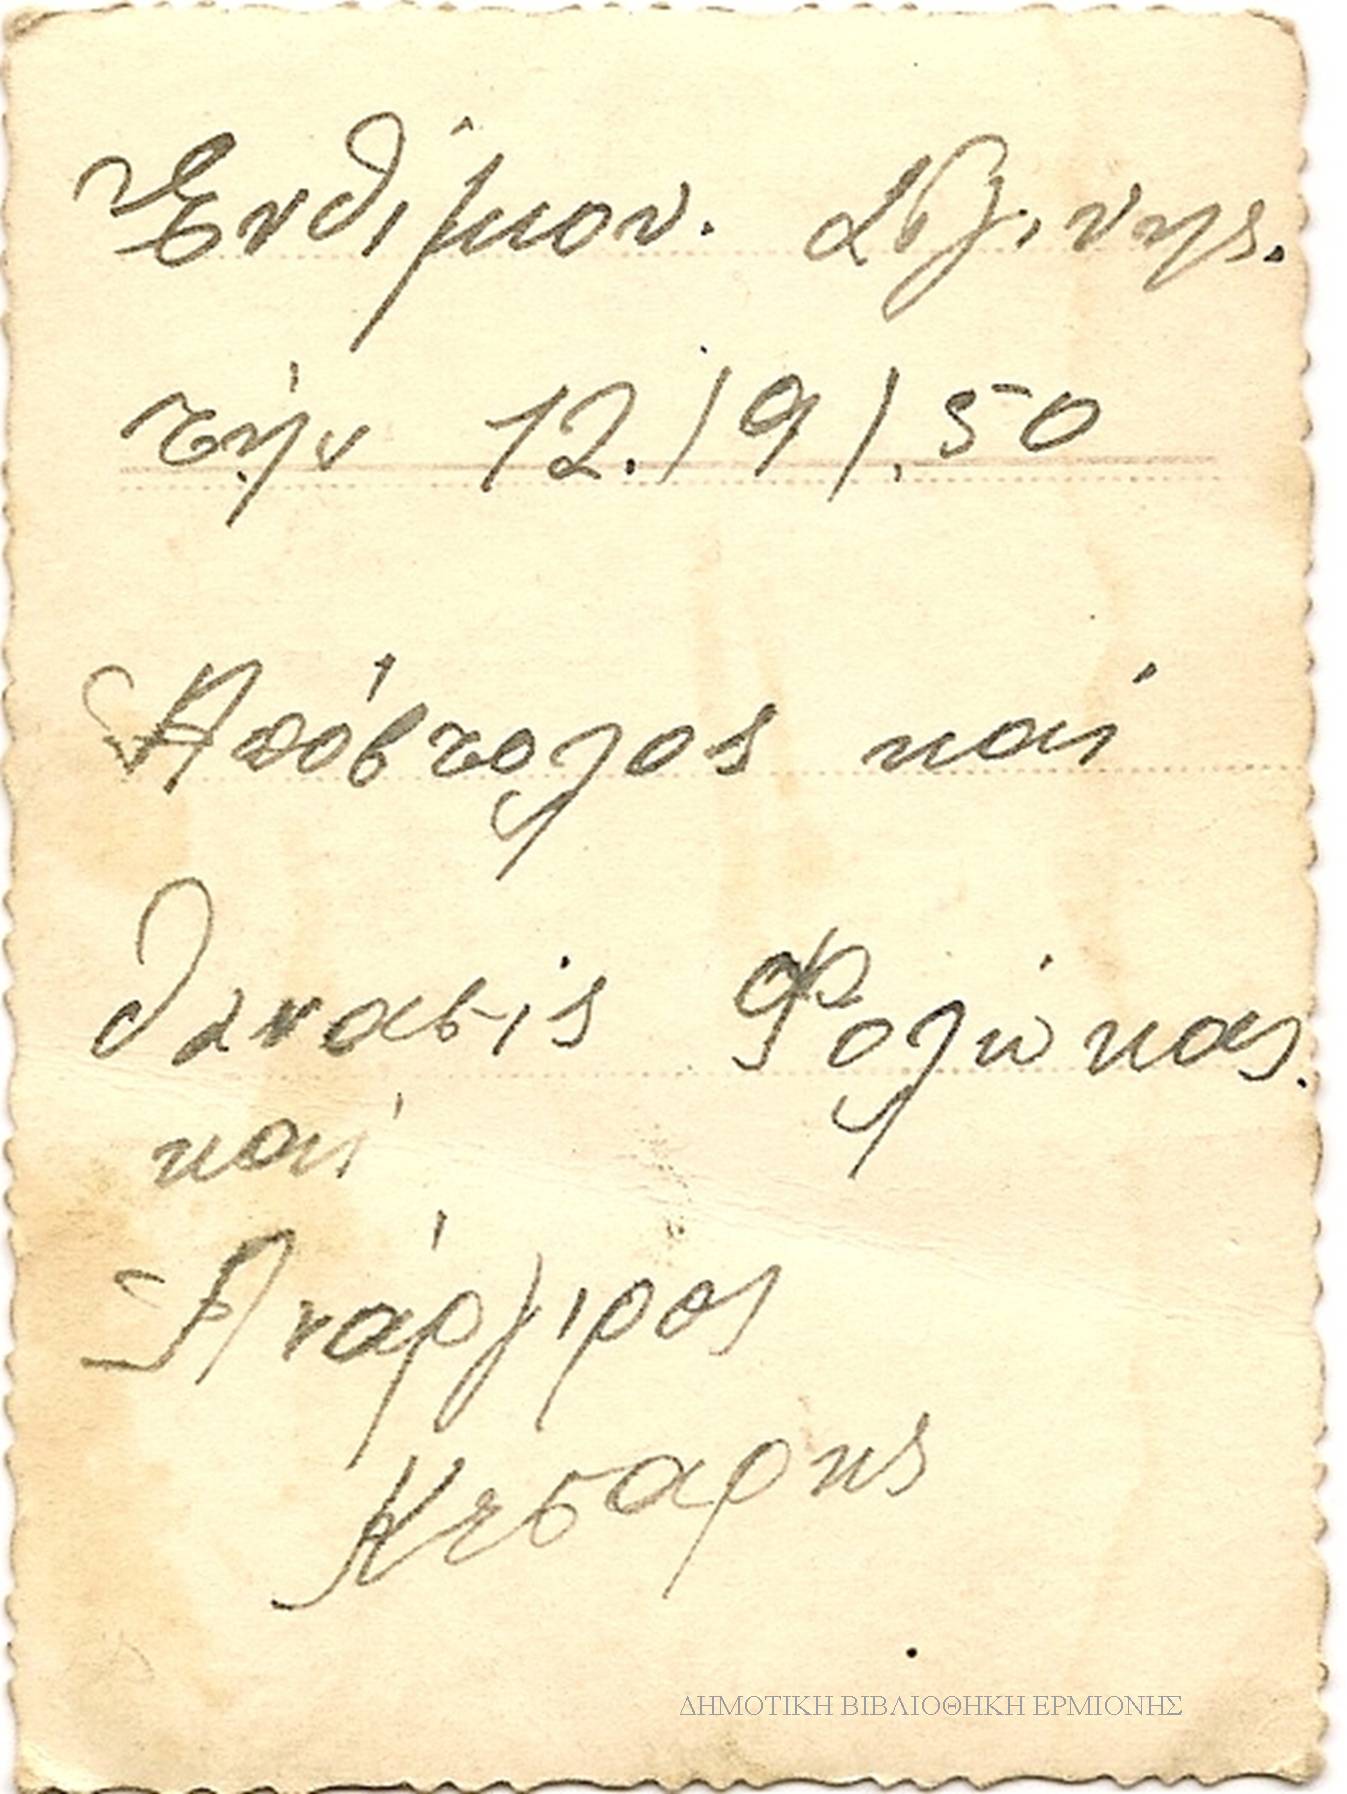 Ενθίμιον. Αἰγίνης.
τήν 12./9/.50
Απόστολος καί
Θανασις Φολώκας.
καί
Ανάργιρος
Κεσαρης
ΔΗΜΟΤΙΚΗ ΒΙΒΛΙΟΘΗΚΗ ΕΡΜΙΟΝΗΣ